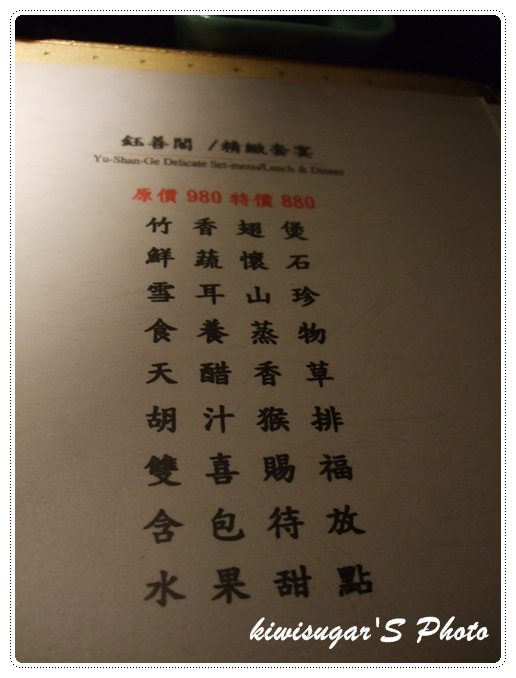 鈺善閣 /精緻套宴
Yu-Shan-Ge Delicate Set-menu/Lunch & Dinner
原價 980 特價 880
竹香翅煲
鮮蔬懷石
雪耳山珍
食養蒸物
天醋香草
胡汁猴排
雙喜賜福
含包待放
水果甜點
kiwisugar'S Photo